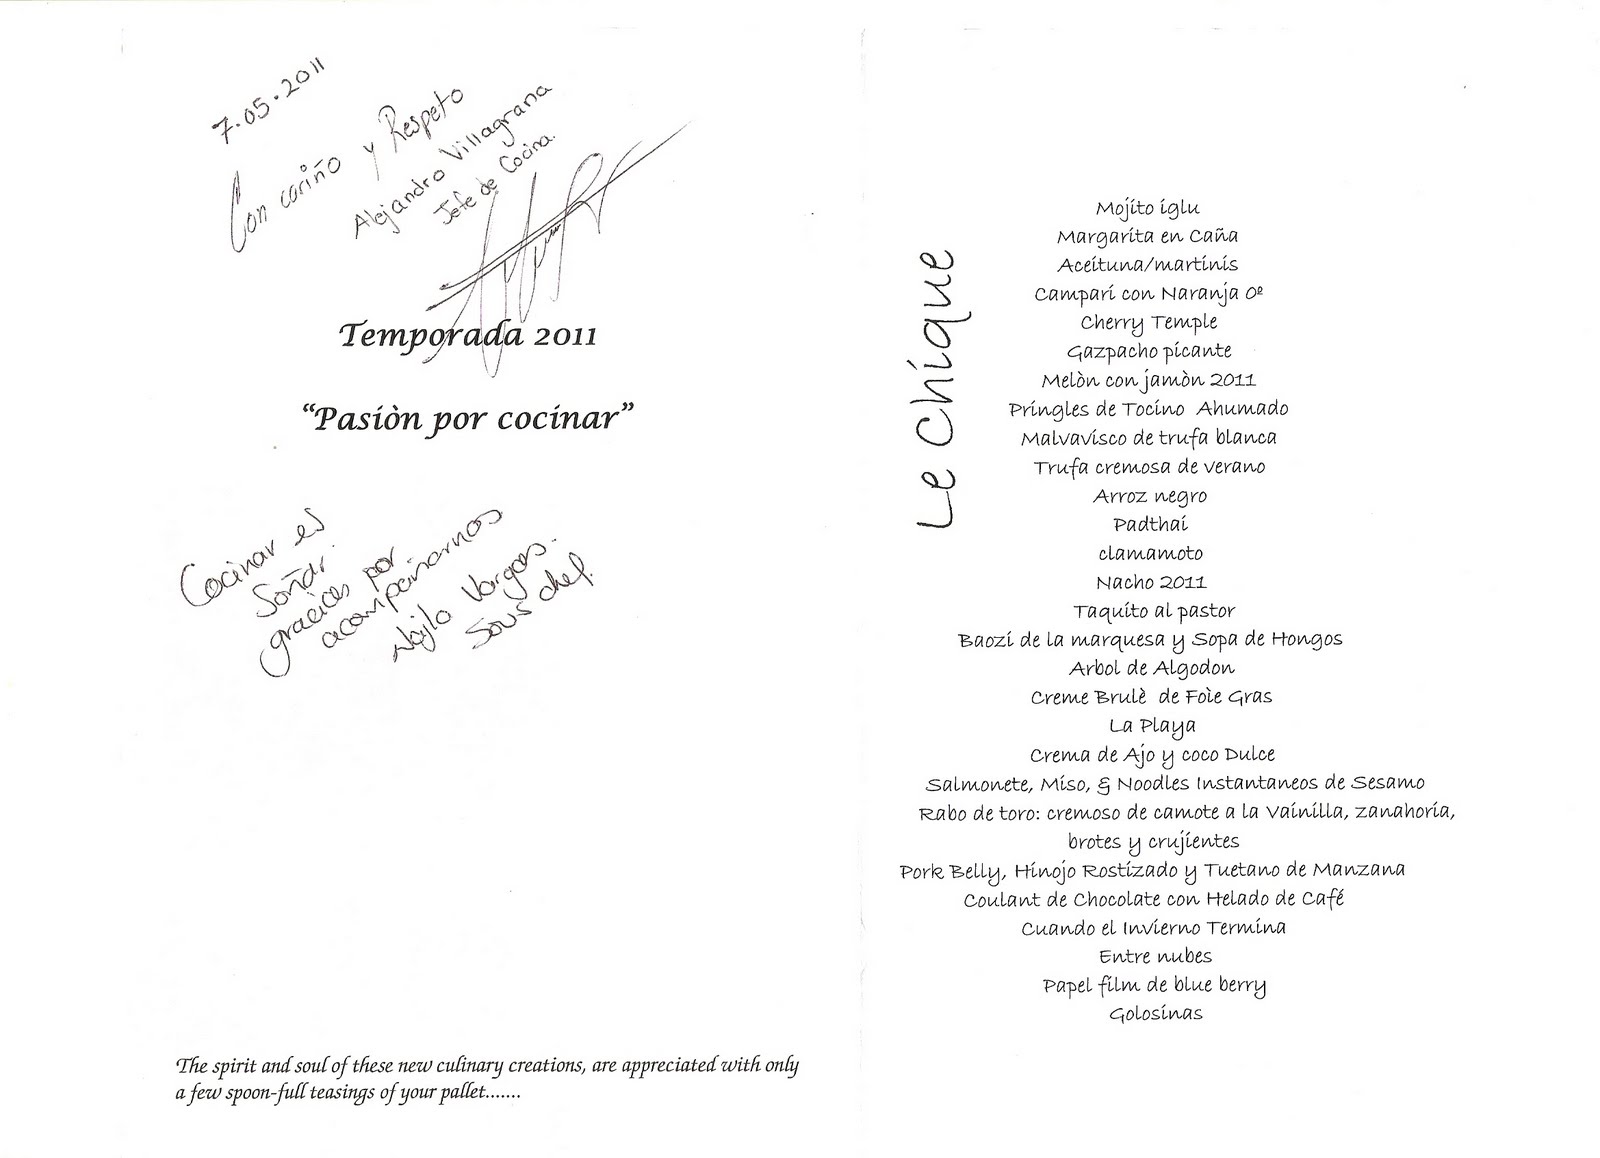 7.05.2011
Con cariño y Respeto
Alejandro Villagrana
Jefe de Cocina.
Temporada 2011
“Pasiòn por cocinar”
Cocinar es
Soñar.
gracias por
acompañarnos
Vargas.
Sous chef.
The spirit and soul of these new culinary creations, are appreciated with only
a few spoon-full teasings of your pallet.......
Le Chique
Mojito iglu
Margarita en Caña
Aceituna/martinis
Campari con Naranja 0º
Cherry Temple
Gazpacho picante
Melòn con jamòn 2011
Pringles de Tocino Ahumado
Malvavisco de trufa blanca
Trufa cremosa de verano
Arroz negro
Padthai
clamamoto
Nacho 2011
Taquito al pastor
Baozi de la marquesa y Sopa de Hongos
Arbol de Algodon
Creme Brulè de Foie Gras
La Playa
Crema de Ajo y coco Dulce
Salmonete, Miso, & Noodles Instantaneos de Sesamo
Rabo de toro: cremoso de camote a la Vainilla, zanahoria,
brotes y crujientes
Pork Belly, Hinojo Rostizado y Tuetano de Manzana
Coulant de Chocolate con Helado de Café
Cuando el Invierno Termina
Entre nubes
Papel film de blue berry
Golosinas